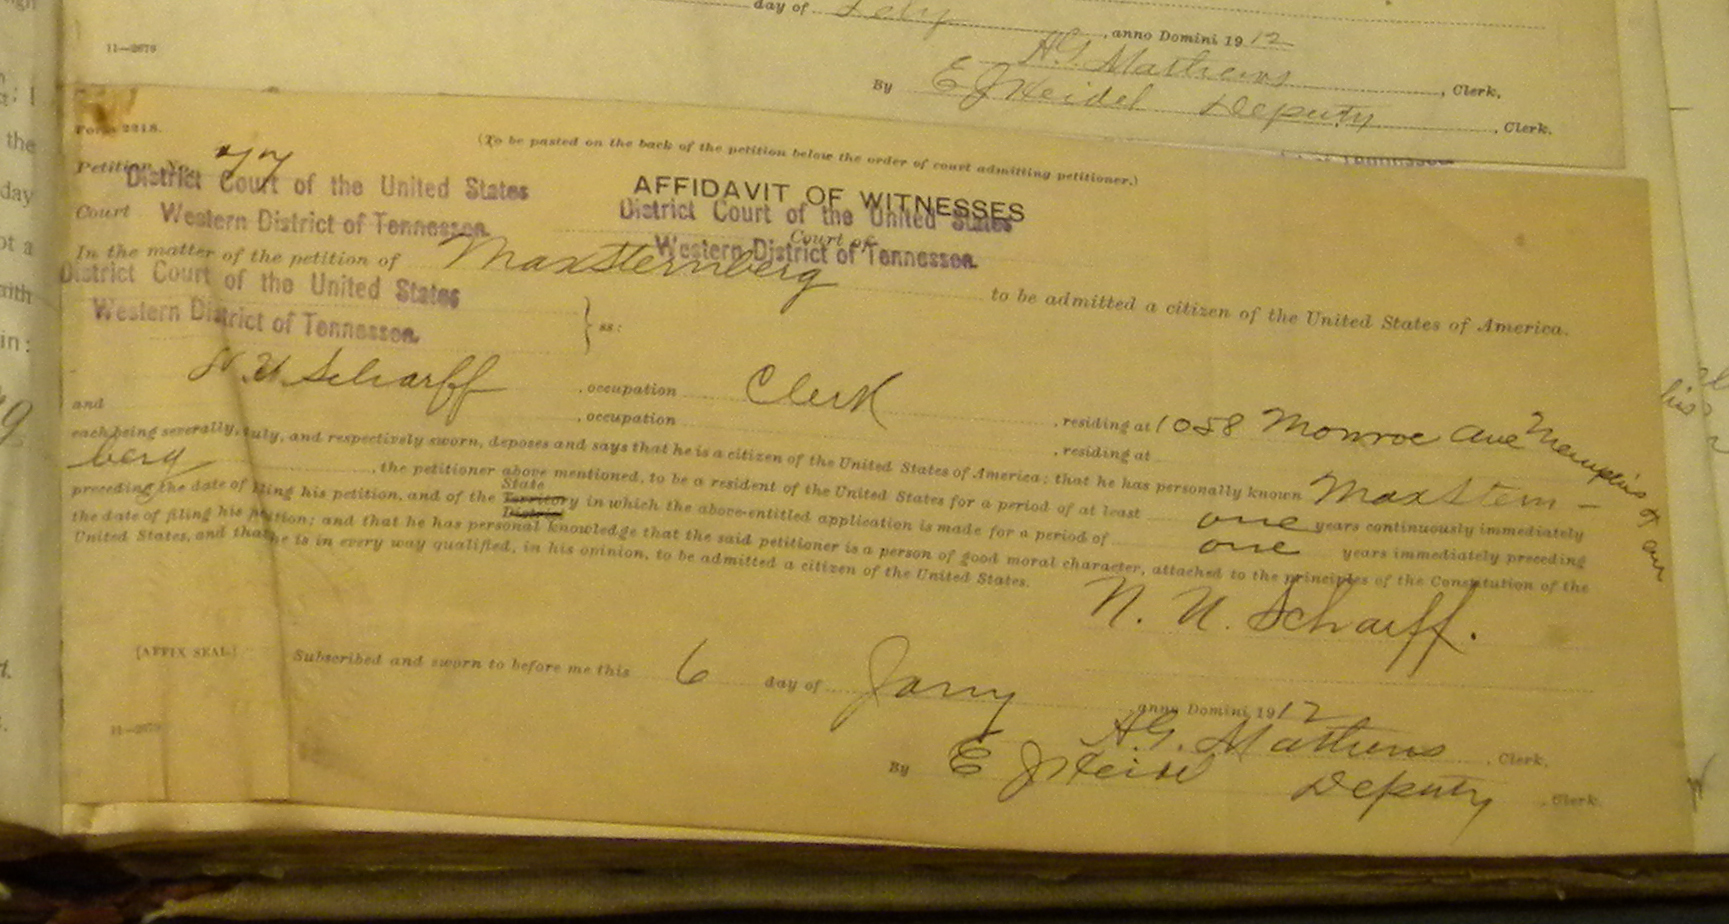 day of July, anno Domini 1912
11—2679
H.G. Mathews, Clerk.
By E J Heidel Deputy, Clerk.
Form 2218.
(To be pasted on the back of the petition below the order of court admitting petitioner.)
Petition No. 77
District Court of the United States
AFFIDAVIT OF WITNESSES
District Court of the United States
Court Western District of Tennessee.
Court of
Western District of Tennessee.
In the matter of the petition of Max Sternberg to be admitted a citizen of the United States of America.
District Court of the United States
Western District of Tennessee.
ss:
N. U. Scharff, occupation Clerk, residing at 1058 Monroe Ave Memphis
and , occupation , residing at
each being severally, duly, and respectively sworn, deposes and says that he is a citizen of the United States of America; that he has personally known Max Stern-
berg, the petitioner above mentioned, to be a resident of the United States for a period of at least one years continuously immediately
preceding the date of filing his petition, and of the State Territory District in which the above-entitled application is made for a period of one years immediately preceding
the date of filing his petition; and that he has personal knowledge that the said petitioner is a person of good moral character, attached to the principles of the Constitution of the
United States, and that he is in every way qualified, in his opinion, to be admitted a citizen of the United States.
N. U. Scharff.
[AFFIX SEAL.]
Subscribed and sworn to before me this 6 day of Jany anno Domini, 1912
11—2679
H.G. Mathews, Clerk.
By E J Heidel Deputy, Clerk.